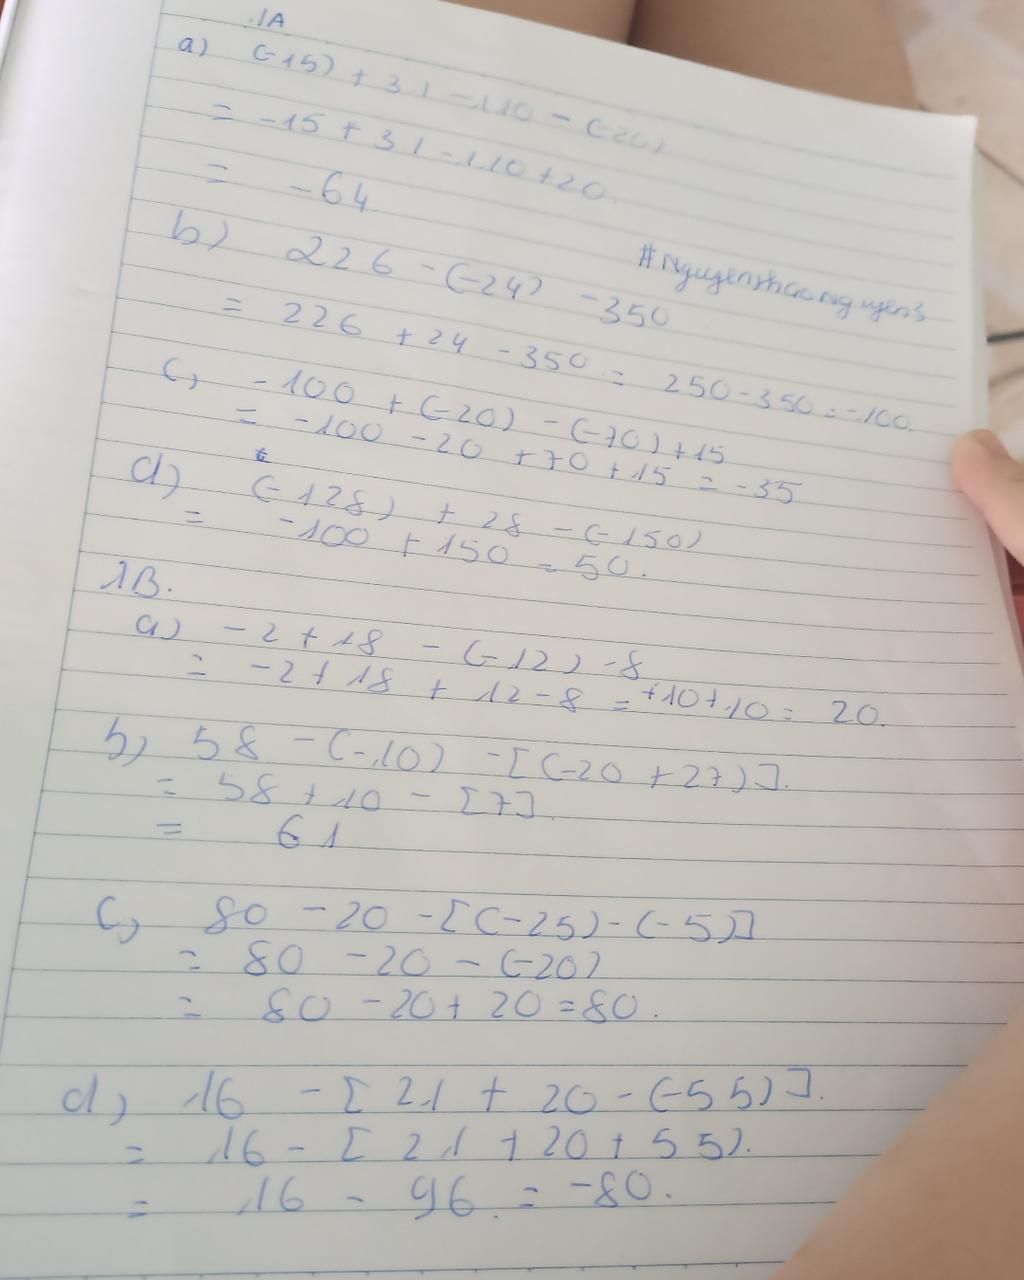 1A
a) (-15) + 31 - 110 - (-20)
= -15 + 31 - 110 + 20
= -64
b) 226 - (-24) - 350
= 226 + 24 - 350 = 250 - 350 = -100.
c, -100 + (-20) - (-70) + 15
= -100 - 20 + 70 + 15 = -35
d) (-128) + 28 - (-150)
= -100 + 150 = 50.
1B.
a) -2 + 18 - (-12) - 8
= -2 + 18 + 12 - 8 = +10 + 10 = 20.
b, 58 - (-10) - [(-20 + 27)].
= 58 + 10 - [7]
= 61
c, 80 - 20 - [(-25) - (-5)]
= 80 - 20 - (-20)
= 80 - 20 + 20 = 80.
d, 16 - [21 + 20 - (-55)].
= 16 - [21 + 20 + 55).
= 16 - 96 = -80.